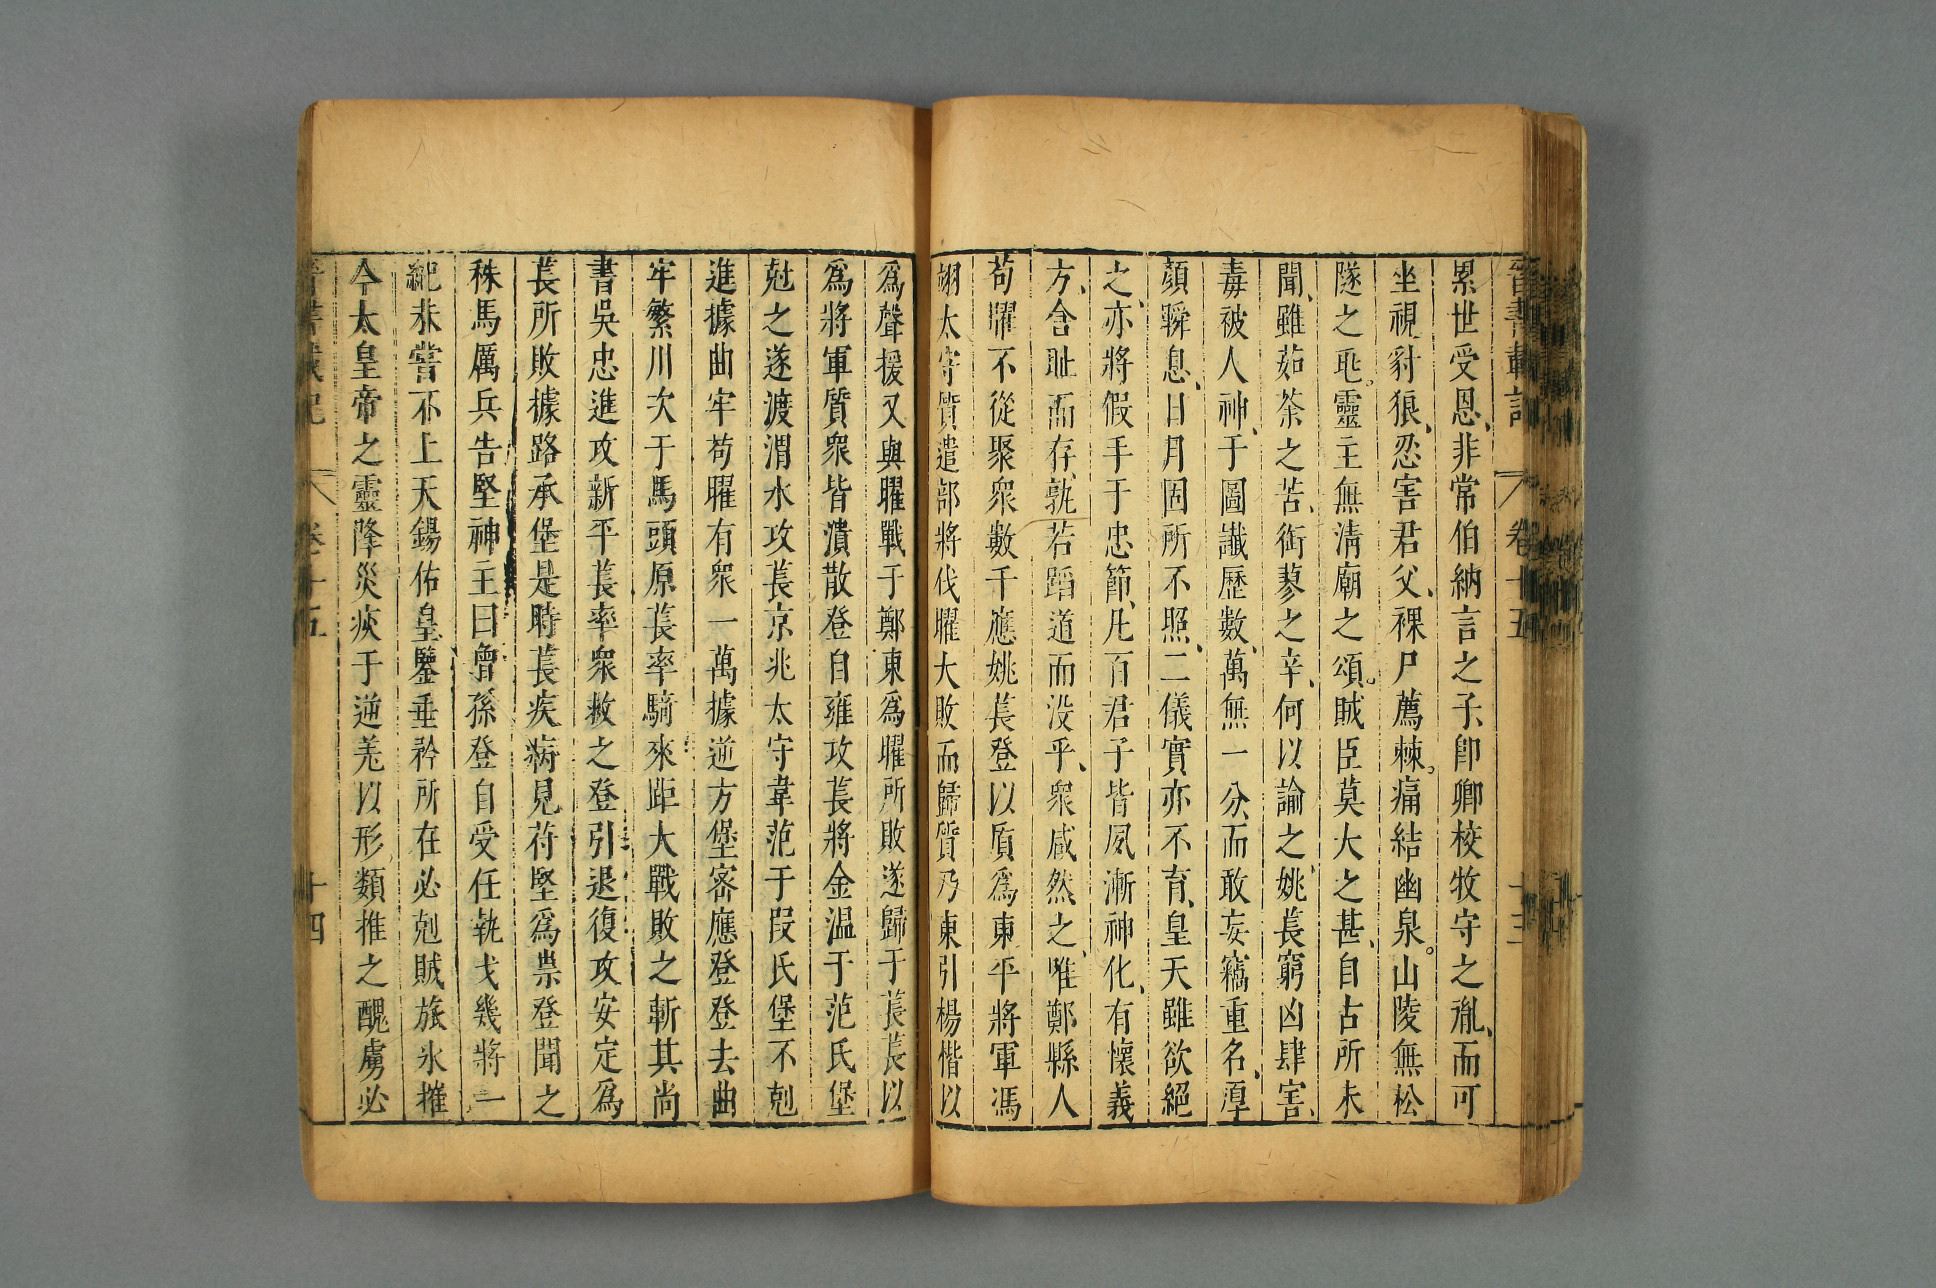 晉書載記 卷十五 十三
累世受恩非常伯納言之子卽卿校牧守之胤而可
坐視豺狼忍害君父裸尸薦棘痛結幽泉山陵無松
隧之兆靈主無清廟之頌賊臣莫大之甚自古所未
聞雖茹荼之苦銜蓼之辛何以諭之姚萇窮凶肆害
毒被人神于圖讖歷數萬無一分而敢妄竊重名厚
顏瞬息日月固所不照二儀實亦不育皇天雖欲絕
之亦將假手于忠節凡百君子皆夙漸神化有懷義
方含耻而存孰若蹈道而没乎衆咸然之唯鄭縣人
苟曜不從聚衆數千應姚萇登以質爲東平將軍馮
翊太守質遣部將伐曜大敗而歸質乃東引楊楷以
爲聲援又與曜戰于鄭東爲曜所敗遂歸于萇萇以
爲將軍質衆皆潰散登自雍攻萇將金温于范氏堡
尅之遂渡渭水攻萇京兆太守韋范于段氏堡不尅
進據曲牢苟曜有衆一萬據逆方堡密應登登去曲
牢繁川次于馬頭原萇率騎來距大戰敗之斬其尚
書吳忠進攻新平萇率衆救之登引退復攻安定爲
萇所敗據路承堡是時萇疾病見苻堅爲祟登聞之
秣馬厲兵告堅神主曰曾孫登自受任執戈幾將一
紀未嘗不上天錫佑皇鑒垂矜所在必尅賊旅氷摧
今太皇帝之靈降災疢于逆羌以形類推之醜虜必
晉書載記 卷十五 十四